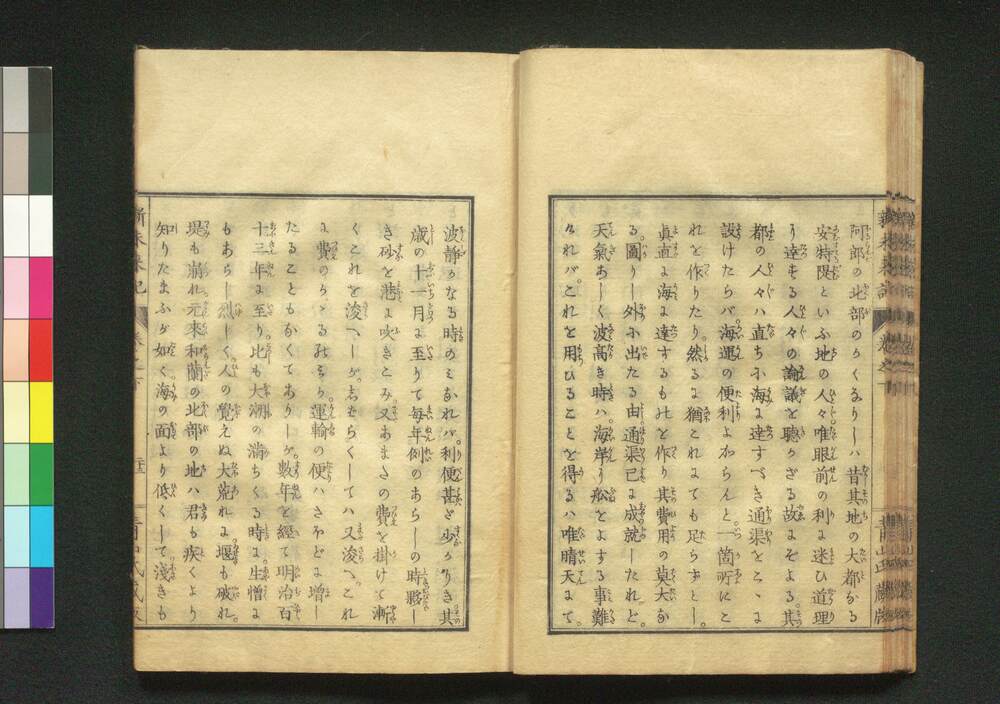 阿郎の北部のかくなりしハ昔其地の大都なる
安特堤といふ地の人々唯眼前の利に迷ひ道理
に達せる人々の論議を聴かざる故にそよる其
都の人々ハ直ちに海に達すべき通渠をこゝに
設けたらバ海運の便利よからんと一箇所にこ
れを作りたり。然るに猶これにても足らずとし
真直に海に達するものを作り其費用の莫大な
る。圖りし外に出たる由通渠已に成就したれど。
天氣あしく波高き時ハ。海岸に舩をよする事難
けれバ。これを用ひることを得るハ唯晴天にて。
波静かなる時のミなれバ。利便甚だ少かりき其
歳の十一月に至りて毎年例のあらしの時
き砂を港に吹きこみ又あまたの費を掛けて漸
くこれを浚へしが。しばらくしてハ又浚へ。これ
に費のかゝるのミか。運輸の便ハさほどに増し
たることもなくてありしが。数年を經て明治百
十三年に至り。比も大潮の満ちくる時に。生憎に
もあらし烈しく人の覺えぬ大荒れに。堰も破れ。
堤も崩れ元來和蘭の北部の地ハ君も疾くより
知りたまふが如く海の面より低くして。淺きも
新未來記
卷之下
青山氏藏版